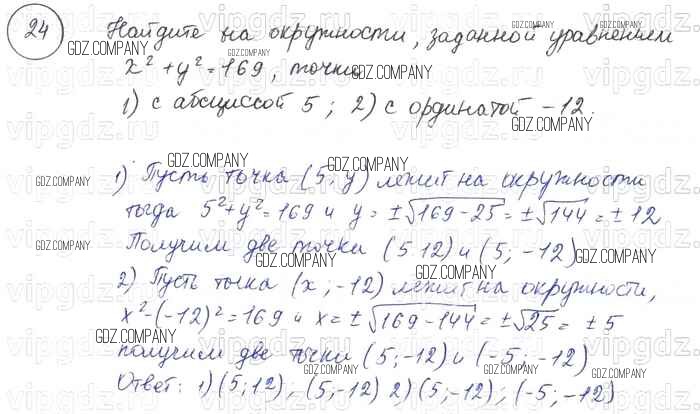 24 Найдите на окружности, заданной уравнением
x² + y² = 169, точки
1) с абсциссой 5 ; 2) с ординатой -12.
1) Пусть точка (5; y) лежит на окружности
тогда 5² + y² = 169 и y = ±√169-25 = ±√144 = ± 12
Получим две точки (5 12) и (5; -12)
2) Пусть точка (x ; -12) лежит на окружности,
x² - (-12)² = 169 и x = ±√169-144 = ±√25 = ± 5
получим две точки (5; -12) и (-5; -12)
Ответ: 1) (5; 12) ; (5; -12) 2) (5; -12) ; (-5; -12)
GDZ.COMPANY
vipgdz.ru